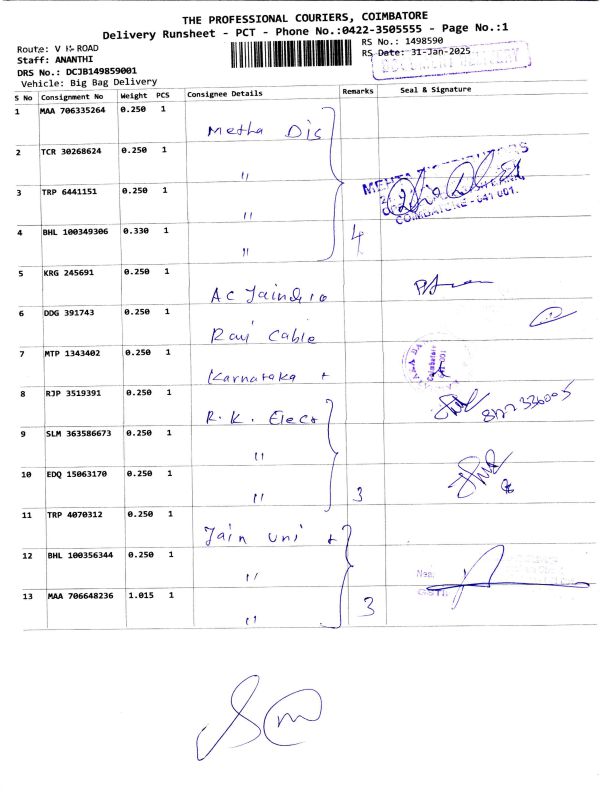 THE PROFESSIONAL COURIERS, COIMBATORE
Delivery Runsheet - PCT - Phone No.:0422-3505555 - Page No.:1
Route: V H ROAD
RS No.: 1498590
Staff: ANANTHI
RS Date: 31-Jan-2025
DRS No.: DCJB149859001
DOCUMENT DELIVERY
Vehicle: Big Bag Delivery
S No Consignment No Weight PCS Consignee Details Remarks Seal & Signature
1 MAA 706335264 0.250 1 Metha Dis
2 TCR 30268624 0.250 1 "
3 TRP 6441151 0.250 1 "
COIMBATORE - 641 001.
4 BHL 100349306 0.330 1 " 4
5 KRG 245691 0.250 1 AC Jaindro
6 DDG 391743 0.250 1 Ravi Cable
7 MTP 1343402 0.250 1 Karnataka +
Coimbatore
641 001
8 RJP 3519391 0.250 1 R. K. Elect
9 SLM 363586673 0.250 1 "
10 EDQ 15063170 0.250 1 " 3
11 TRP 4070312 0.250 1 Jain Uni +
12 BHL 100356344 0.250 1 "
13 MAA 706648236 1.015 1 " 3